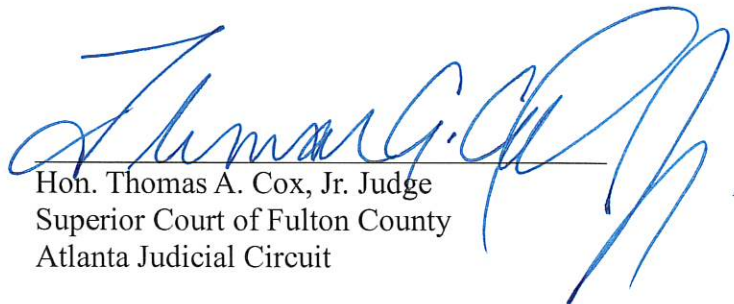 Thomas A. Cox, Jr.
Hon. Thomas A. Cox, Jr. Judge
Superior Court of Fulton County
Atlanta Judicial Circuit